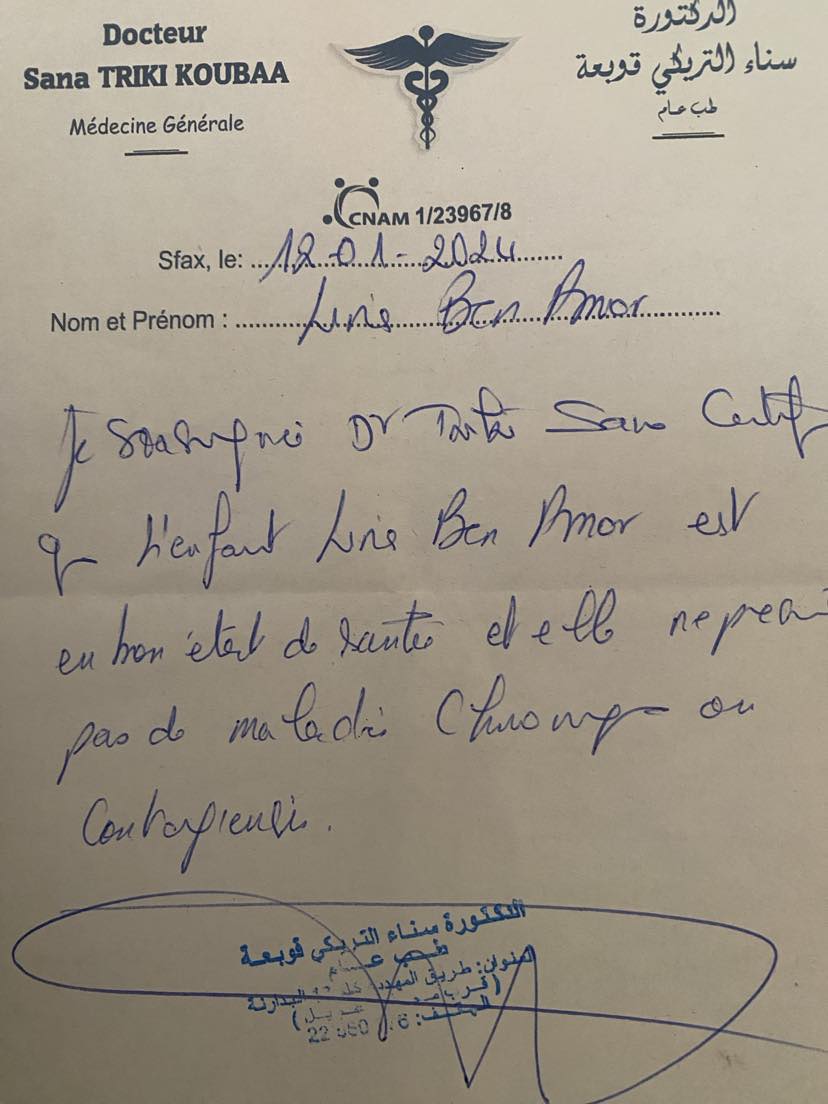 Docteur
Sana TRIKI KOUBAA
Médecine Générale
الدكتورة
سناء التريكي قوبعة
طب عام
CNAM 1/23967/8
Sfax, le: 12-01-2024
Nom et Prénom : Ben Amor
Je soussigné Dr Triki Sana Certif
que l'enfant Ben Amor est
en bon état de santé et elle ne
pas de maladie Chronique ou
Contagieuse.
الدكتورة سناء التريكي قوبعة
طب عام
العنوان: طريق المهدية كلم
الهاتف: 22